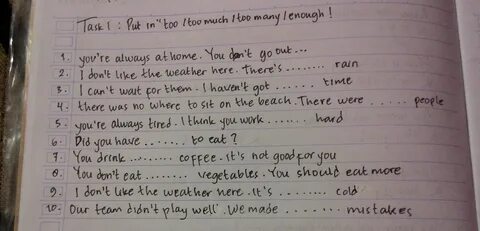 Task 1 : Put in "too / too much / too many / enough !
1. you're always at home. You don't go out...
2. I don't like the weather here. There's ........ rain
3. I can't wait for them. I haven't got ....... time
4. there was no where to sit on the beach. There were ..... people
5. you're always tired. I think you work ....... hard
6. Did you have ........ to eat ?
7. You drink ......... coffee. it's not good for you
8. You don't eat ........ vegetables. You should eat more
9. I don't like the weather here. It's ........ cold
10. Our team didn't play well. We made ....... mistakes